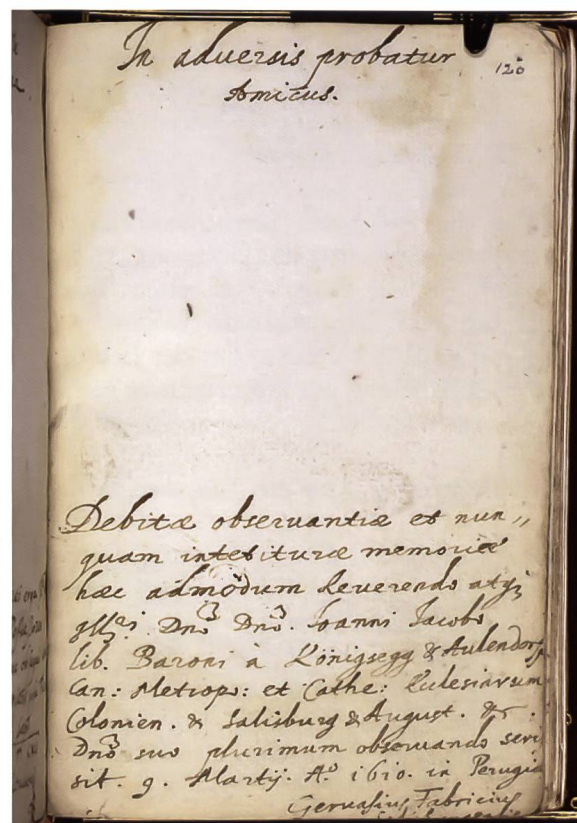 In adversis probatur
Amicus.
120
Debitæ observantiæ et nun„
quam interituræ memoriæ
hæc admodum Reverendo atq;
Dnō Dnō. Ioanni Iacobo
lib. Baroni à Königsegg & Aulendorf
Can: Metrop: et Cathe: Ecclesiarum
Colonien. & Salisburg & August. &c.
Dnō suo plurimum observando scrip
sit. 9. Martij. Aº 1610. in Perugia
Gervasius Fabricius